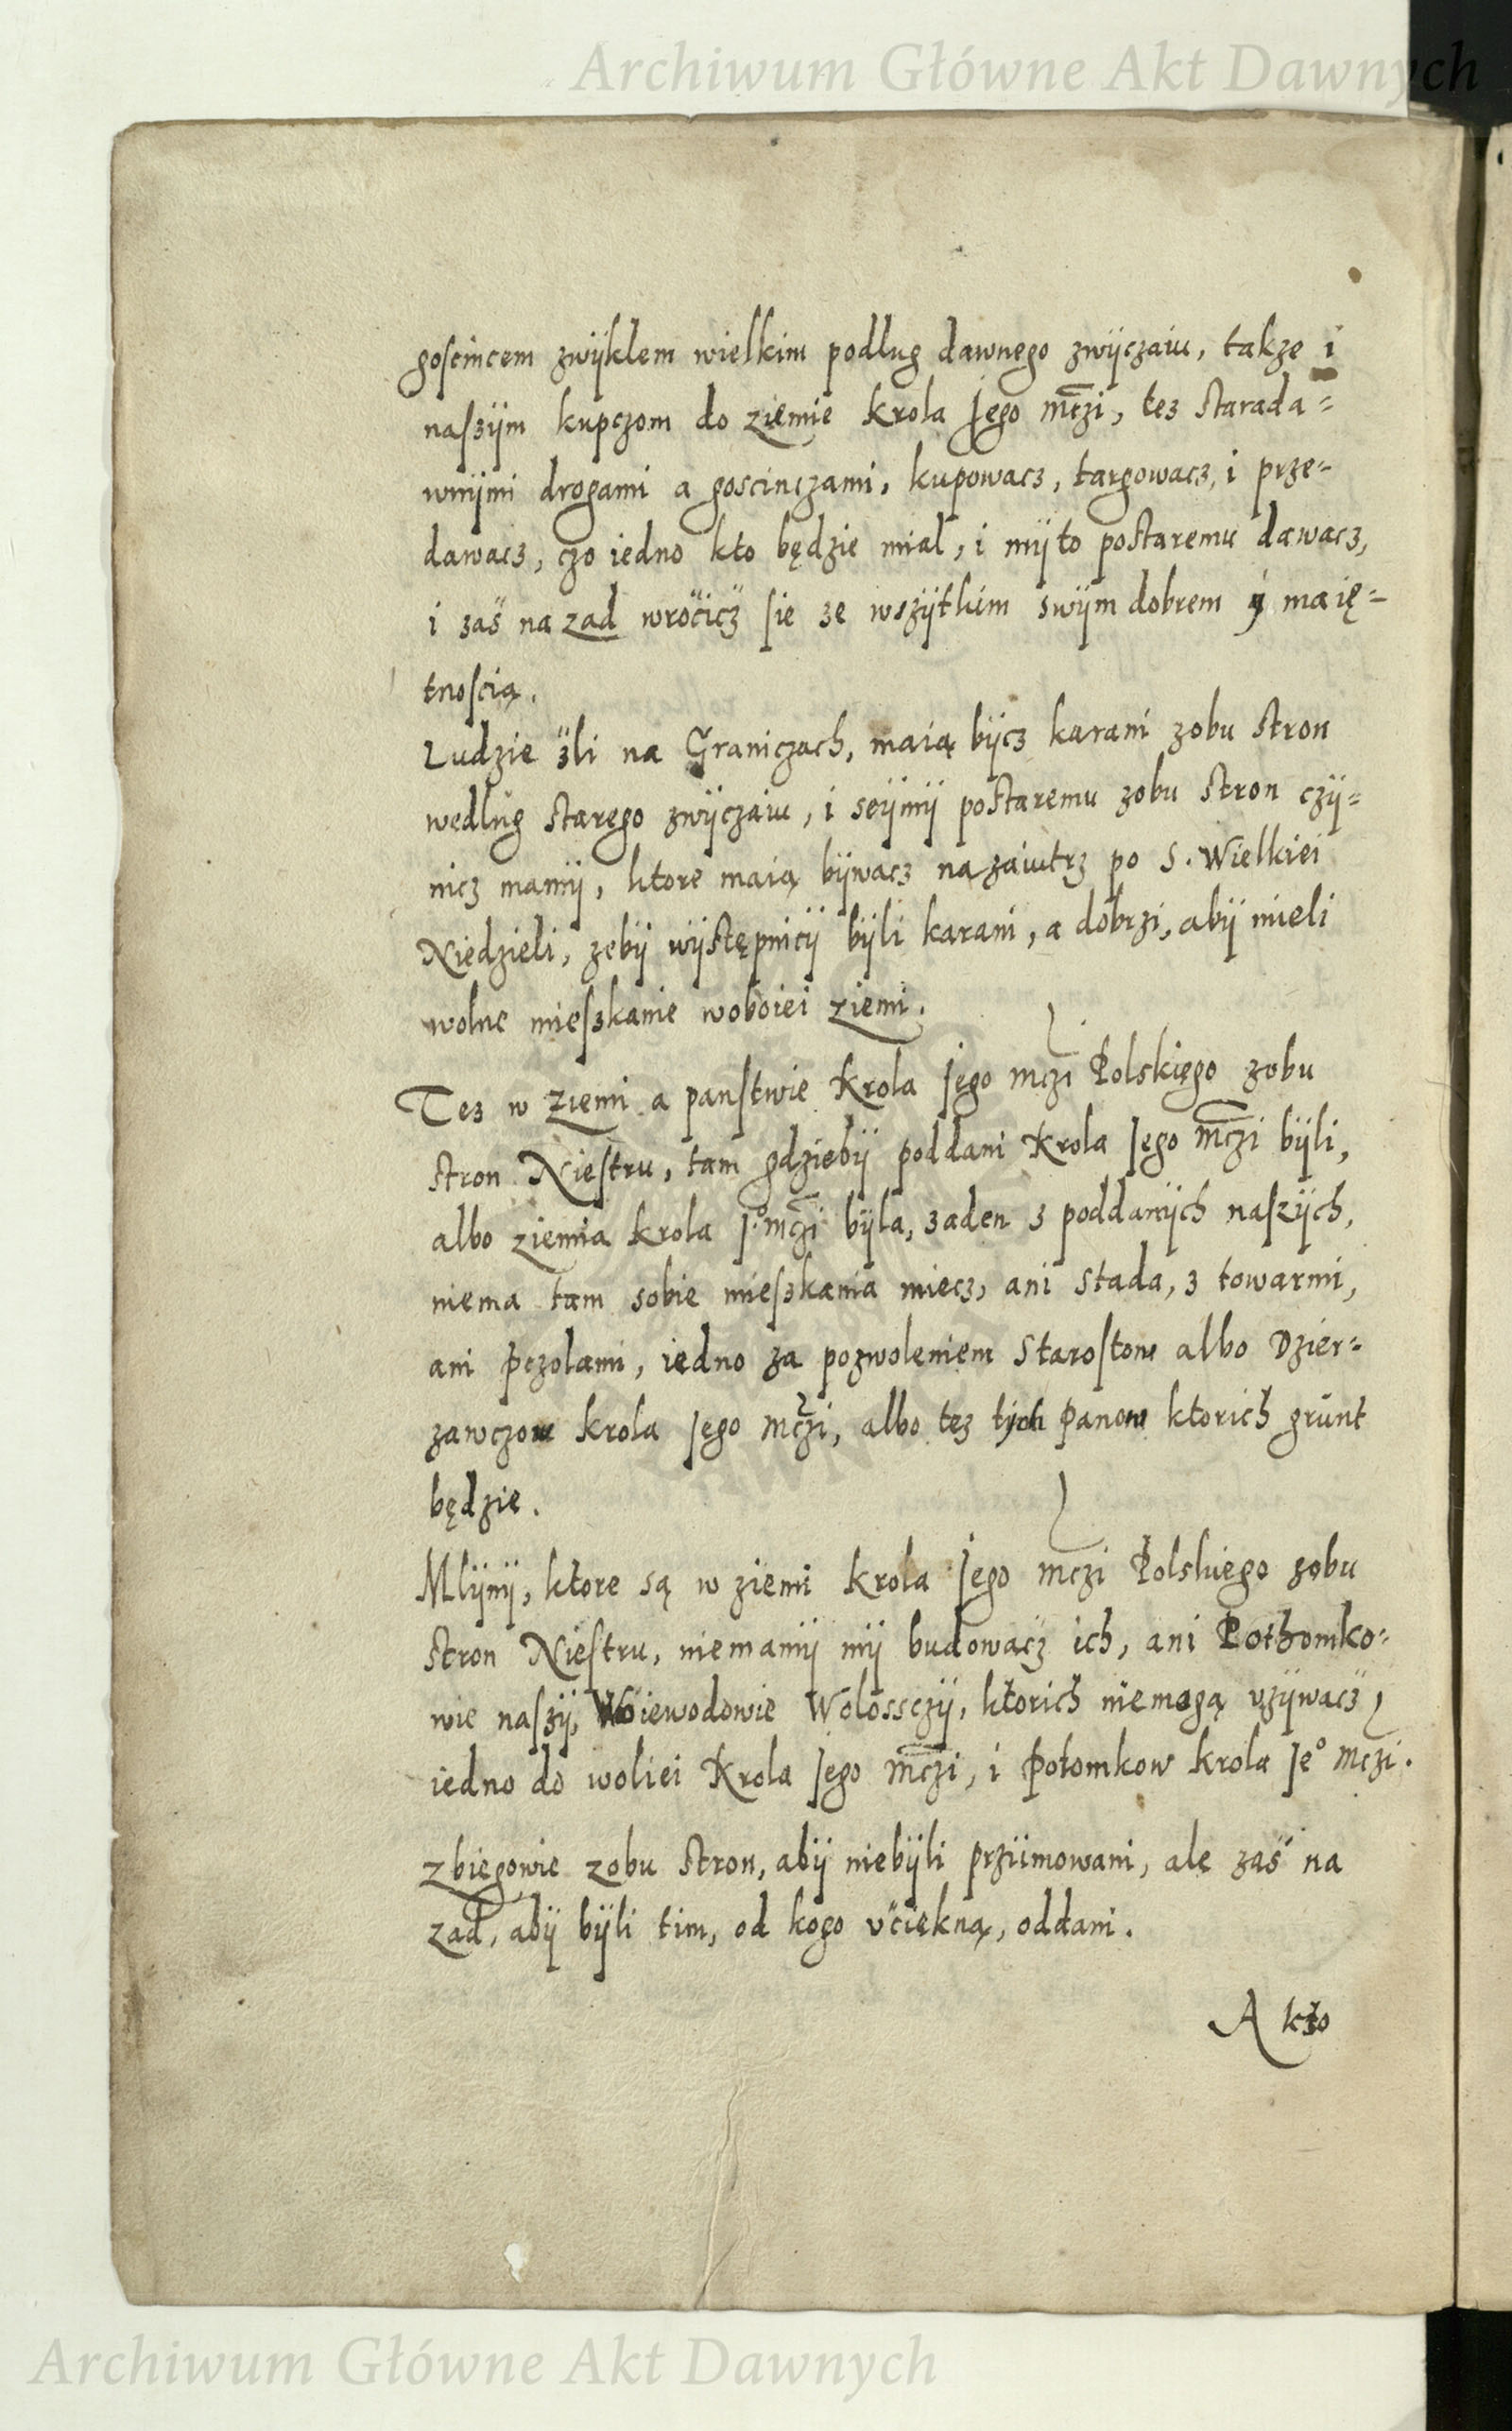 Archiwum Główne Akt Dawnych
goscincem zwÿklem wielkim podlug dawnego zwÿczaiu, takze i
naszÿm kupczom do ziemie Krola Jego mczi, tez starada=
wnÿmi drogami a goscinczami, kupowacz, targowacz, i prze=
dawacz, czo iedno kto będzie mial, i mÿto postaremu dawacz,
i zaś na zad wrócicz sie ze wszÿtkim swÿm dobrem ÿ maię=
tnoscią.
Ludzie źli na Graniczach, maią bÿcz karani zobu stron
wedlug starego zwÿczaiu, i seÿmÿ postaremu zobu stron czÿ=
nicz mamÿ, ktore maią bÿwacz nazaiutrz po S. Wielkiei
Niedzieli, zebÿ wÿstępnicÿ bÿli karani, a dobrzi, abÿ mieli
wolne mieszkanie woboiei ziemi.
Tez w ziemi a panstwie Krola Jego mczi Polskiego zobu
stron Niestru, tam gdziebÿ poddani Krola Jego mczi bÿli,
albo ziemia krola J.º mczi bÿla, zaden z poddanÿch naszÿch,
niema tam sobie mieszkania miecz, ani stada, z towarmi,
ani pczolami, iedno za pozwoleniem Starostow albo Dzier=
zawczow krola Jego mczi, albo tez tÿch Panow ktorich grunt
będzie.
Mlÿnÿ, ktore są w ziemi krola Jego mczi Polskiego zobu
stron Niestru, niemamÿ mÿ budowacz ich, ani Pothomko=
wie naszÿ, Woiewodowie Wolossczÿ, ktorich niemogą vzÿwacz,
iedno do woliei Krola Jego mczi, i Potomkow krola Jeº mczi.
Zbiegowie zobu stron, abÿ niebÿli prziimowani, ale zaś na
zad, abÿ bÿli tim, od kogo vciekną, oddani.
A kto
Archiwum Główne Akt Dawnych